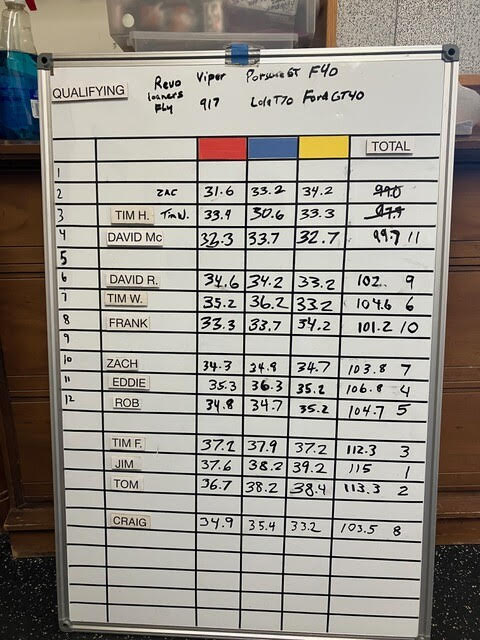 Revo Viper Porsche GT F40
QUALIFYING loaners
Fly 917 Lola T70 Ford GT40
TOTAL
1
2 ZAC 31.6 33.2 34.2 99.0
3 TIM H. Tim W. 33.9 30.6 33.3 97.9
4 DAVID Mc 32.3 33.7 32.7 99.7 11
5
6 DAVID R. 34.6 34.2 33.2 102. 9
7 TIM W. 35.2 36.2 33.2 104.6 6
8 FRANK 33.3 33.7 34.2 101.2 10
9
10 ZACH 34.3 34.9 34.7 103.8 7
11 EDDIE 35.3 36.3 35.2 106.8 4
12 ROB 34.8 34.7 35.2 104.7 5
TIM F. 37.2 37.9 37.2 112.3 3
JIM 37.6 38.2 39.2 115 1
TOM 36.7 38.2 38.4 113.3 2
CRAIG 34.9 35.4 33.2 103.5 8